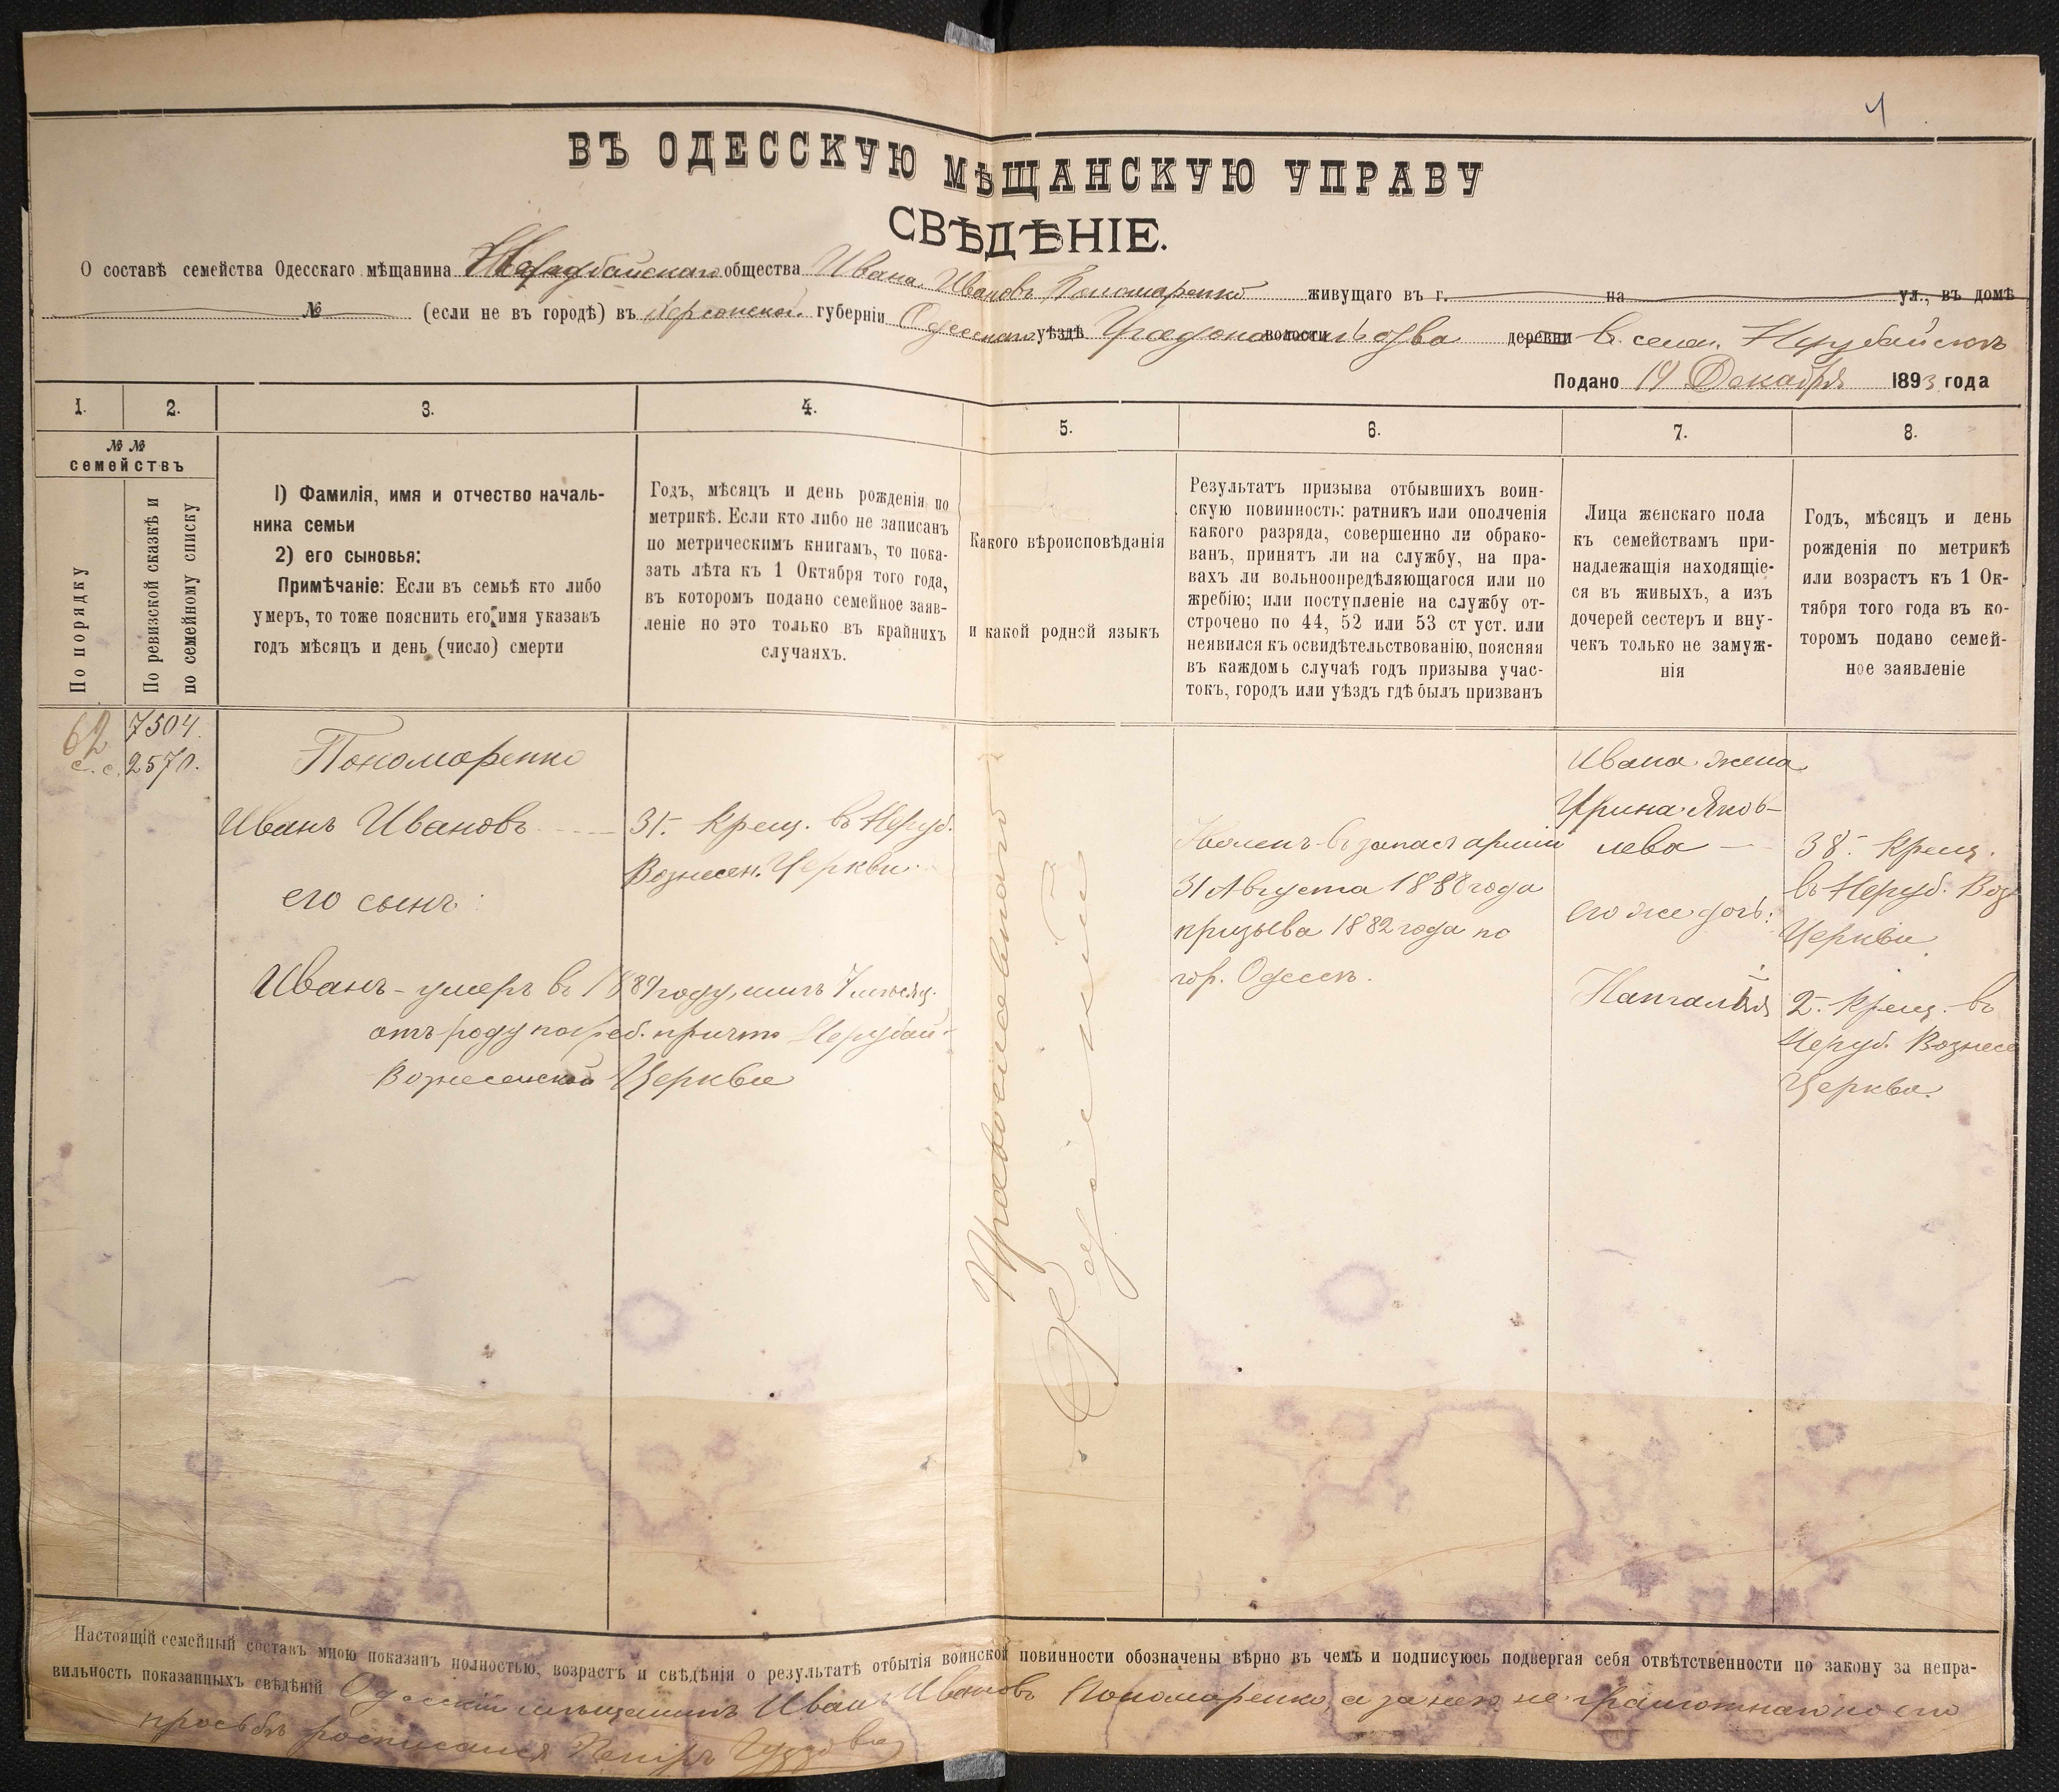 4
ВЪ ОДЕССКУЮ МѢЩАНСКУЮ УПРАВУ
СВѢДѢНІЕ.
О составѣ семейства Одесскаго мѣщанина Нерубайскаго общества Ивана Иванова Пономаренко живущаго въ г. на ул., въ домѣ
№ (если не въ городѣ) въ Херсонской губерніи Одесскаго уѣздѣ Градоначальства волости деревни в. селѣ. Нерубайскомъ
Подано 19 Декабря 1893 года
1. 2. 3. 4. 5. 6. 7. 8.
№ №
семействъ
По порядку
По ревизской сказкѣ и
по семейному списку
1) Фамилія, имя и отчество началь-
ника семьи
2) его сыновья:
Примѣчаніе: Если въ семьѣ кто либо
умеръ, то тоже пояснить его имя указавъ
годъ мѣсяцъ и день (число) смерти
Годъ, мѣсяцъ и день рожденія по
метрикѣ. Если кто либо не записанъ
по метрическимъ книгамъ, то пока-
зать лѣта къ 1 Октября того года,
въ которомъ подано семейное заяв-
леніе но это только въ крайнихъ
случаяхъ.
Какого вѣроисповѣданія
и какой родной языкъ
Результатъ призыва отбывшихъ воин-
скую повинность: ратникъ или ополченія
какого разряда, совершенно ли обрако-
ванъ, принятъ ли на службу, на пра-
вахъ ли вольноопредѣляющагося или по
жребію; или поступленіе на службу от-
строчено по 44, 52 или 53 ст уст. или
неявился къ освидѣтельствованію, поясняя
въ каждомъ случаѣ годъ призыва учас-
токъ, городъ или уѣздъ гдѣ былъ призванъ
Лица женскаго пола
къ семействамъ при-
надлежащія находящіе-
ся въ живыхъ, а изъ
дочерей сестеръ и вну-
чекъ только не замуж-
нія
Годъ, мѣсяцъ и день
рожденія по метрикѣ
или возрастъ къ 1 Ок-
тября того года въ ко-
торомъ подано семей-
ное заявленіе
62
с. с.
7504.
2570.
Пономаренко
Иванъ Ивановъ
его сынъ:
Иванъ - умеръ въ 1889 году, имѣя 7 мѣсяц.
отъ роду погреб. причт. Нерубай-
Вознесенской Церкви
31. Крещ. въ Неруб.
Вознесен. Церкви.
Православнаго
Русскій
Уволенъ въ запасъ арміи
31 Августа 1888 года
призыва 1882 года по
гор. Одессѣ.
Ивана жена
Ирина Яков-
лева
его же дочь:
Наталья
38. Крещ.
въ Неруб. Воз
Церкви
2. Крещ. въ
Неруб. Вознесе
Церкви.
Настоящій семейный составъ мною показанъ полностью, возрастъ и свѣдѣнія о результатѣ отбытія воинской повинности обозначены вѣрно въ чемъ и подписуюсь подвергая себя отвѣтственности по закону за непра-
вильность показанныхъ свѣдѣній Одесскій мѣщанинъ Иванъ Ивановъ Пономаренко, а за него не грамотнаго по его
просьбѣ росписался Петръ